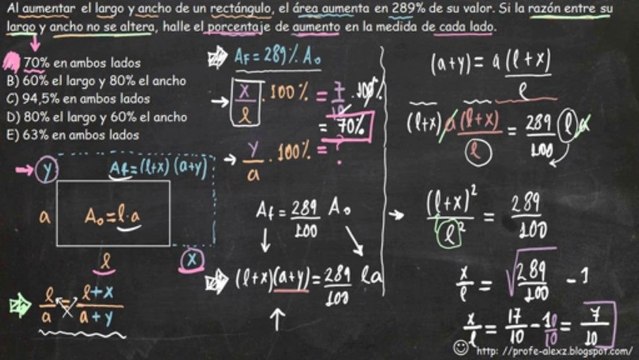 Al aumentar el largo y ancho de un rectángulo, el área aumenta en 289% de su valor. Si la razón entre su
largo y ancho no se altera, halle el porcentaje de aumento en la medida de cada lado.
70% en ambos lados
B) 60% el largo y 80% el ancho
C) 94,5% en ambos lados
D) 80% el largo y 60% el ancho
E) 63% en ambos lados
y
Af = (l+x)(a+y)
a
A₀ = l·a
l
x
l/a = l+x/a+y
AF = 289% A₀
x/l · 100% = 7/10 · 100%
= 70%
y/a · 100% = ?
Af = 289/100 A₀
(l+x)(a+y) = 289/100 la
(a+y) = a(l+x)/l
(l+x) a(l+x)/l = 289/100 la
(l+x)²/l² = 289/100
x/l = √289/100 - 1
x/l = 17/10 - 10/10 = 7/10
http://profe-alexz.blogspot.com/